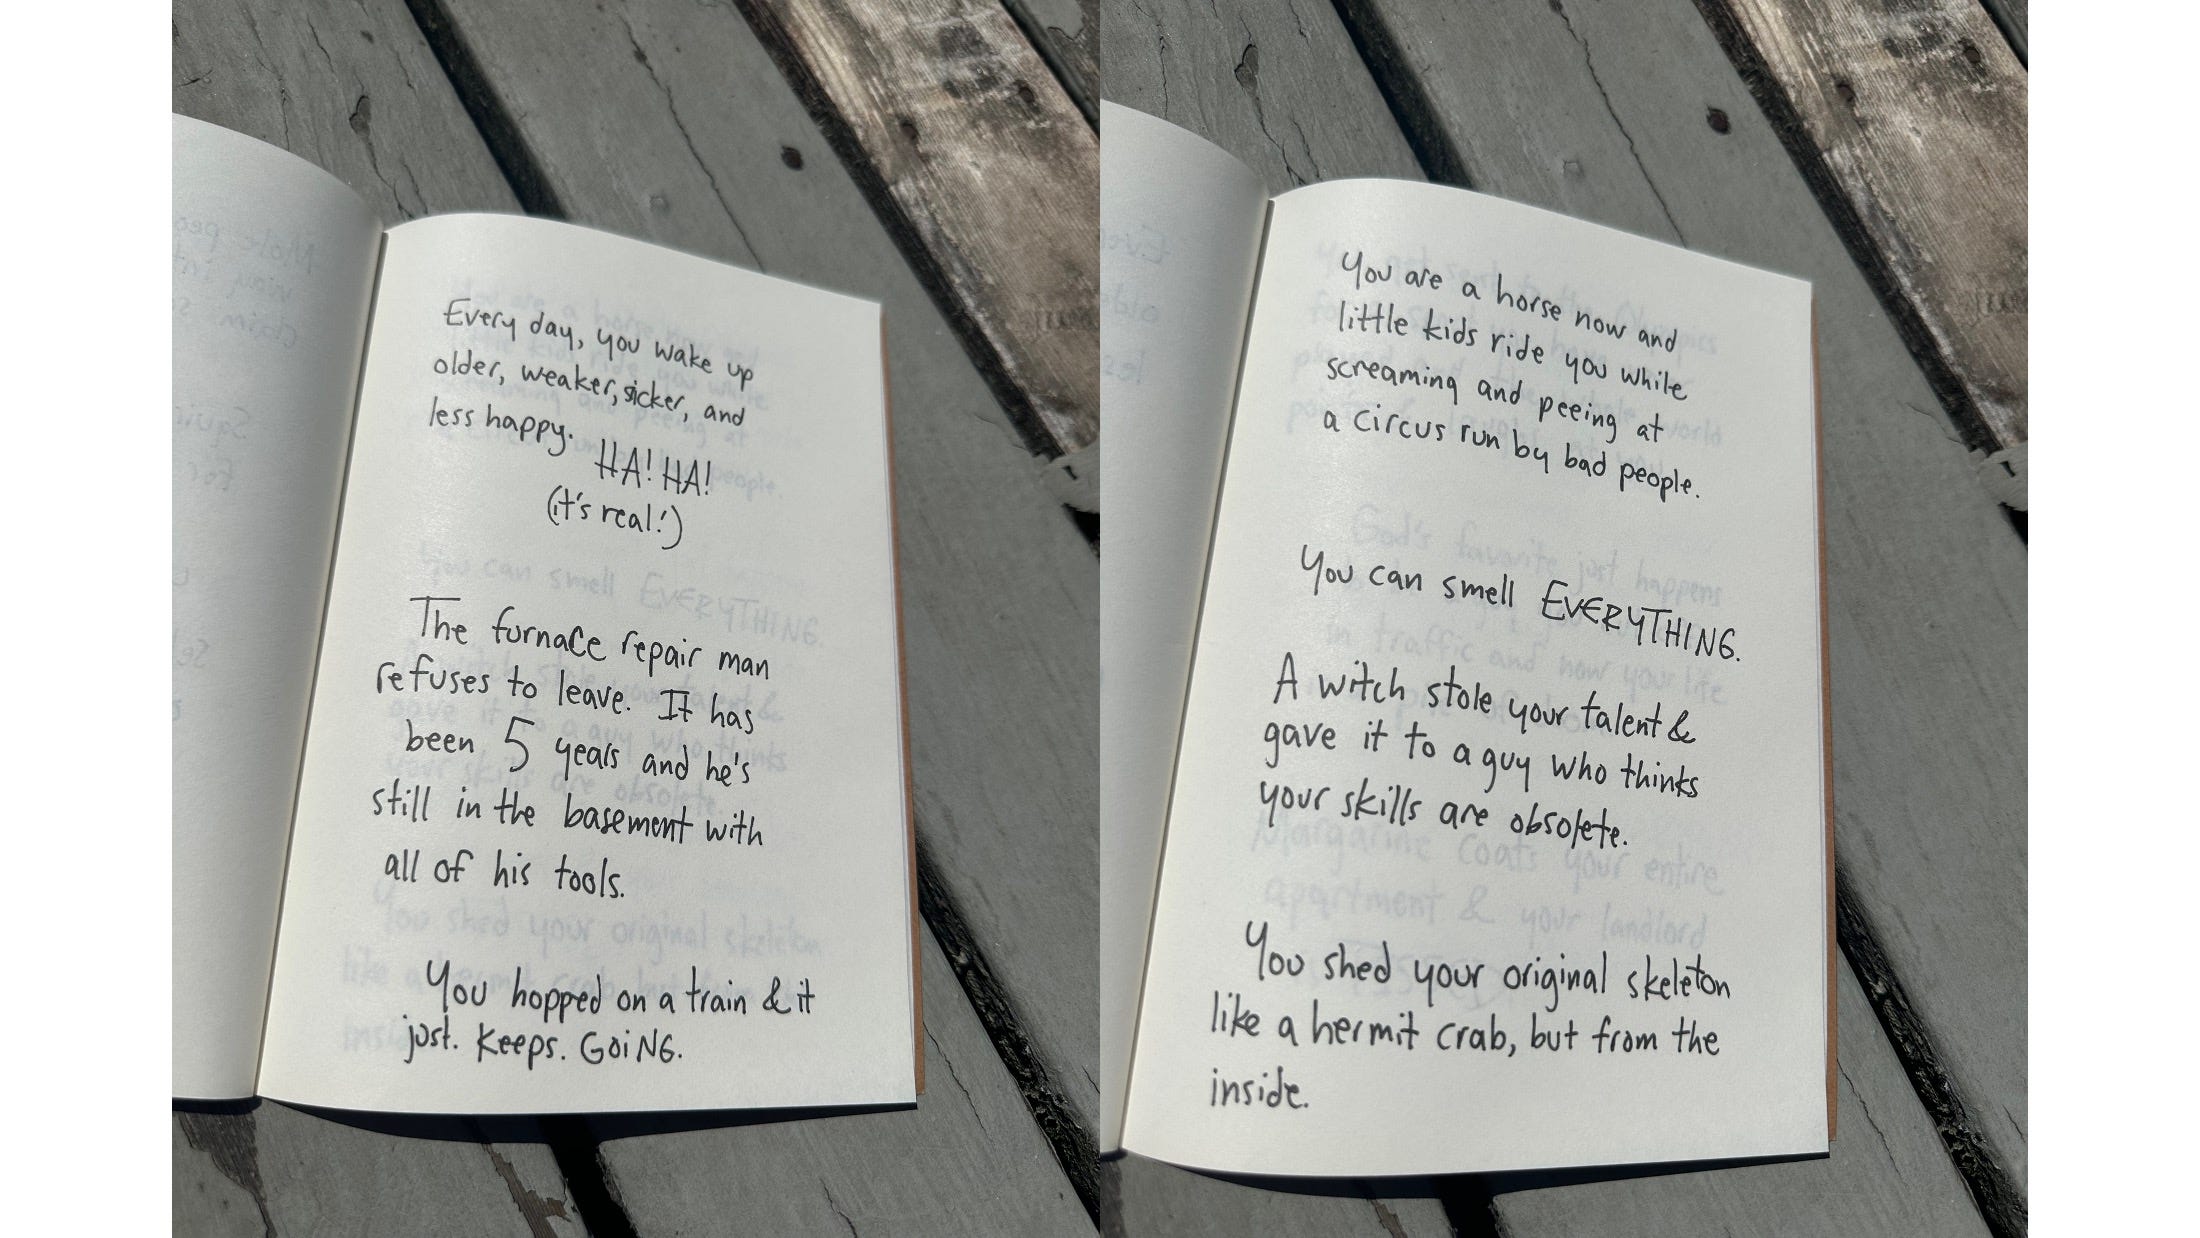 Every day, you wake up
older, weaker, sicker, and
less happy.
HA! HA!
(it's real!)
The furnace repair man
refuses to leave. It has
been 5 years and he's
still in the basement with
all of his tools.
You hopped on a train & it
just. Keeps. GOiNG.
You are a horse now and
little kids ride you while
screaming and peeing at
a circus run by bad people.
You can smell EVERYTHING.
A witch stole your talent &
gave it to a guy who thinks
your skills are obsolete.
You shed your original skeleton
like a hermit crab, but from the
inside.